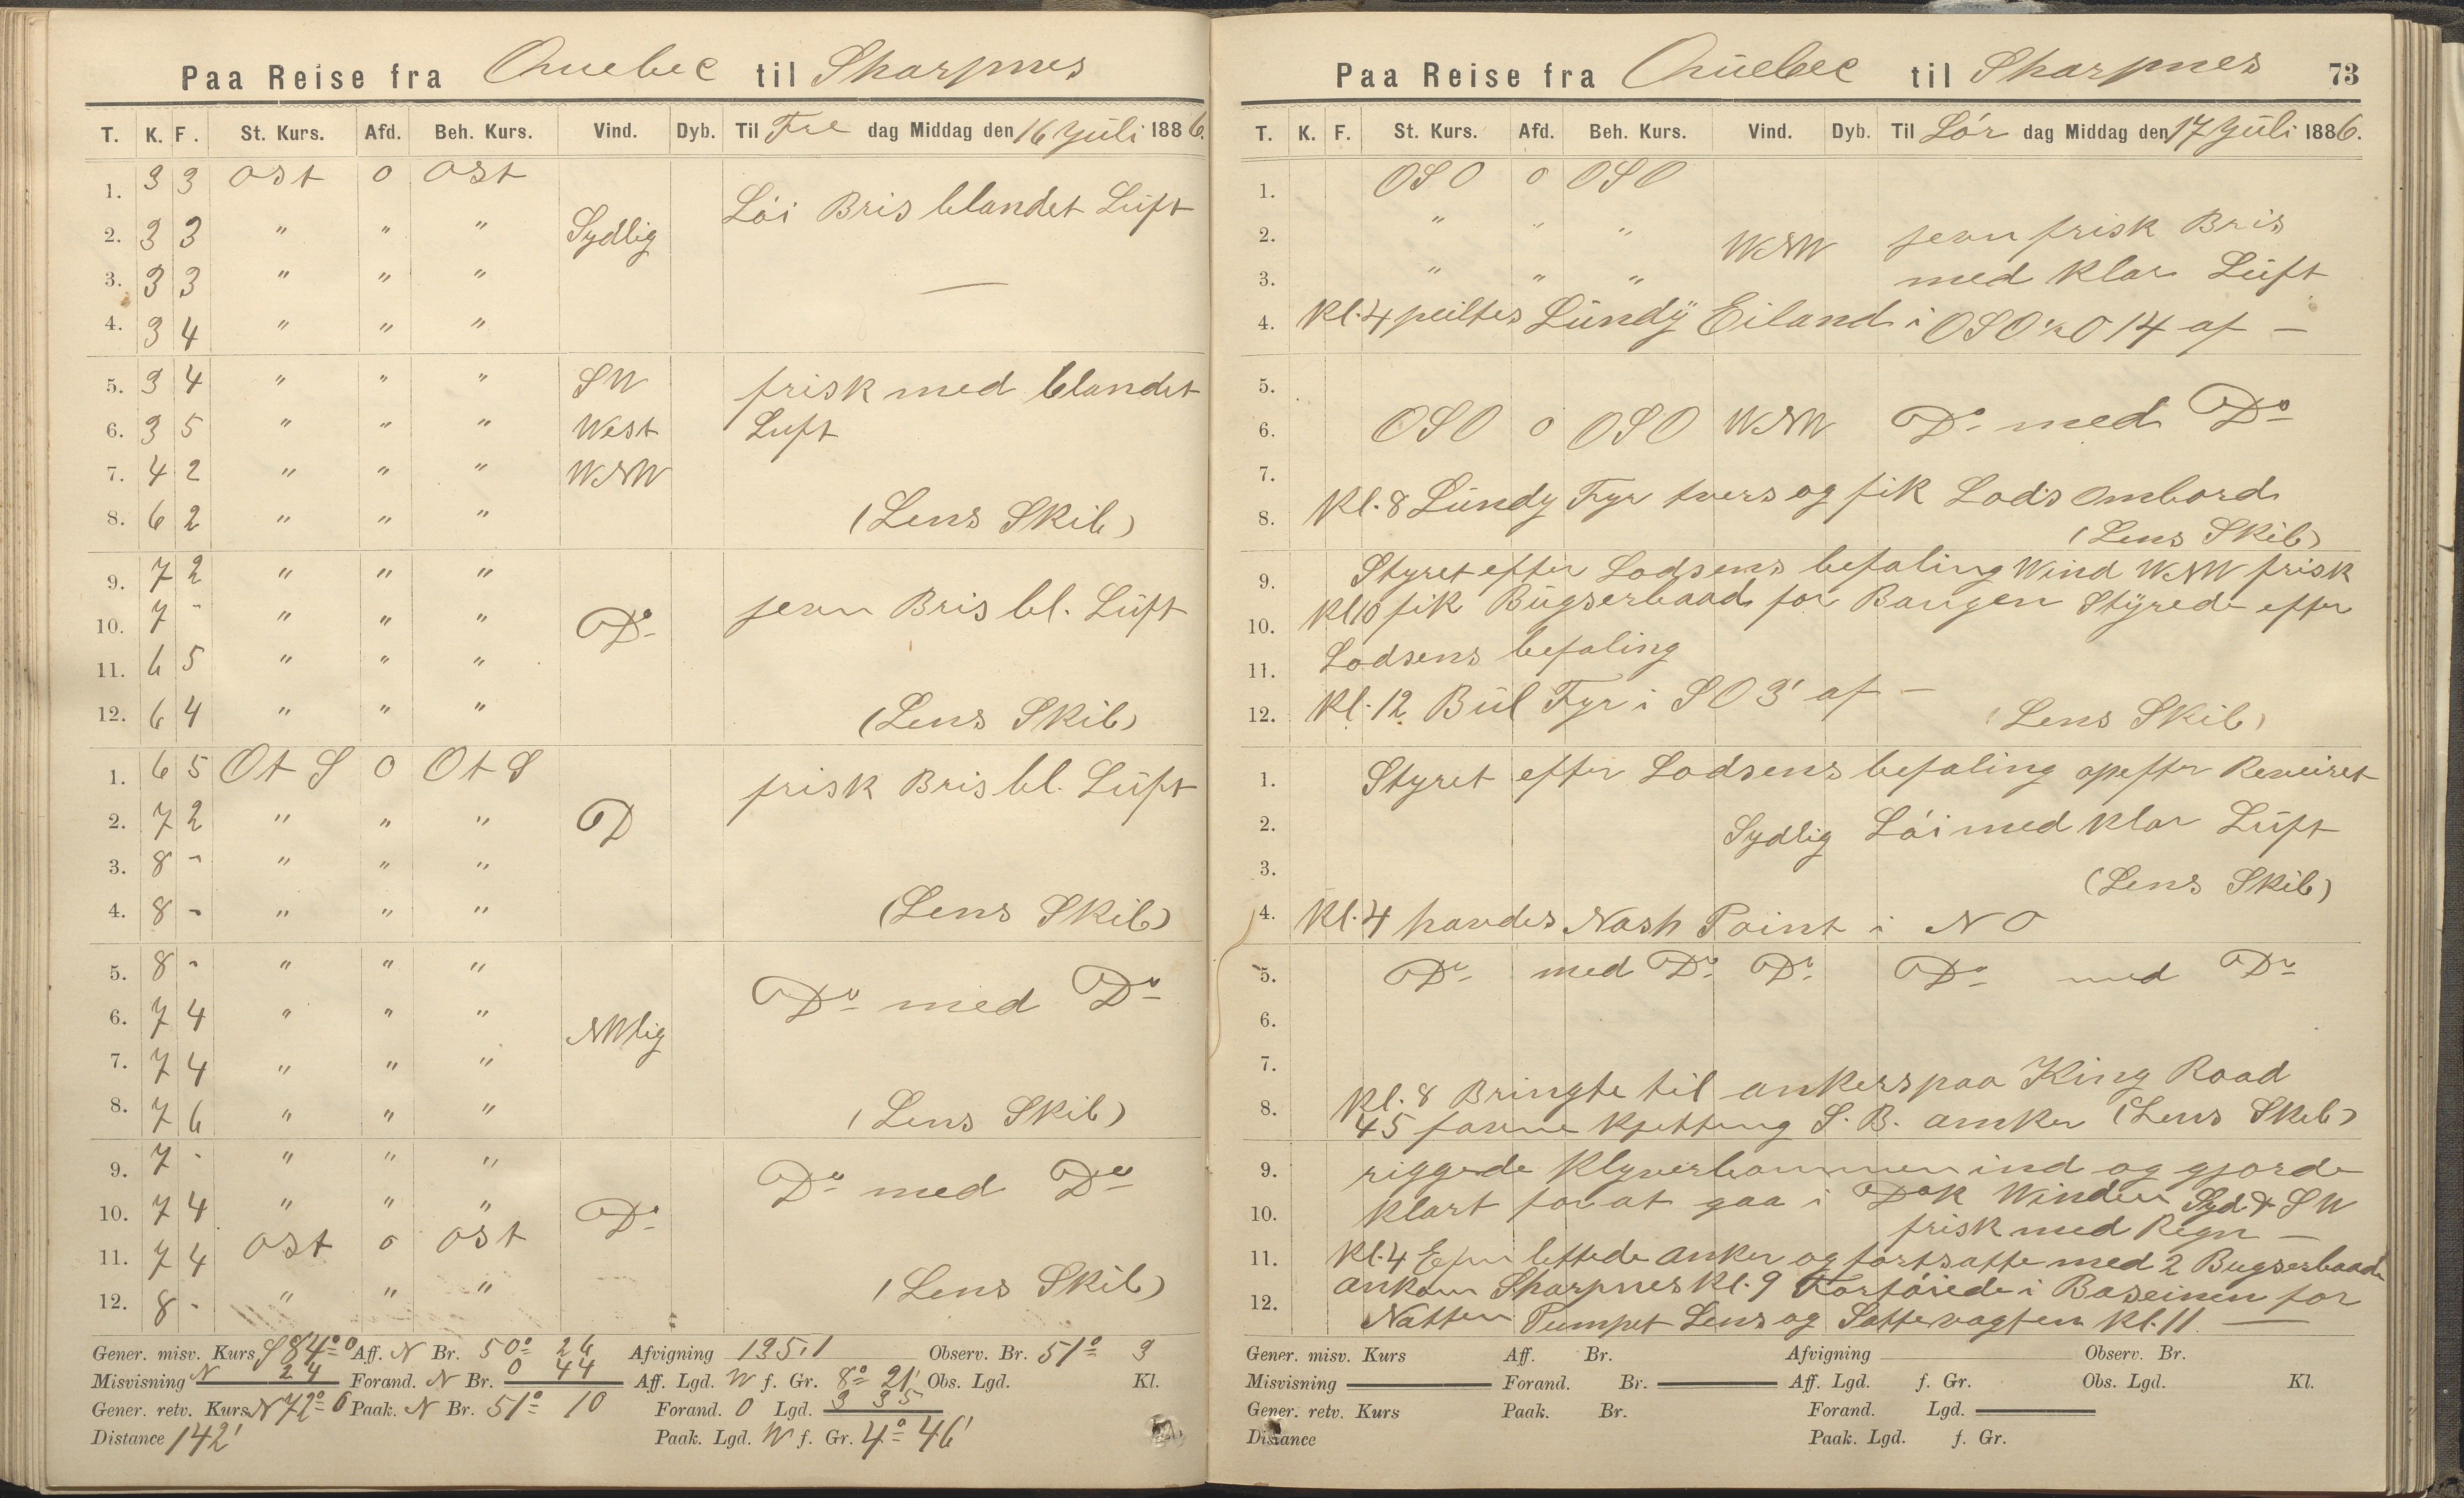 Paa Reise fra Quebec til Sharpnes
T. K. F. St. Kurs. Afd. Beh. Kurs. Vind. Dyb. Til Fre dag Middag den 16 Juli 1886.
1. 3 3 ost o ost
Löi Bris blandet Luft
2. 3 3 " " " Sydlig
3. 3 3 " " " —
4. 3 4 " " "
5. 3 4 " " " SW frisk med blandet
6. 3 5 " " " West Luft
7. 4 2 " " " WNW
8. 6 2 " " " (Lens Skib)
9. 7 2 " " "
10. 7 - " " " Do jevn Bris bl. Luft
11. 6 5 " " "
12. 6 4 " " " (Lens Skib)
1. 6 5 Ot S o Ot S frisk Bris bl. Luft
2. 7 2 " " " D
3. 8 - " " "
4. 8 - " " " (Lens Skib)
5. 8 - " " "
Do med Do
6. 7 4 " " " NWlig
7. 7 4 " " "
8. 7 6 " " " (Lens Skib)
9. 7 - " " " Do med Do
10. 7 4 " " " Do
11. 7 4 ost o ost
12. 8 - " " " (Lens Skib)
Gener. misv. Kurs S 84° O Aff. N Br. 50° 26 Afvigning 135,1 Observ. Br. 51° 9
Misvisning N 24 Forand. N Br. 0 44 Aff. Lgd. W f. Gr. 8° 21' Obs. Lgd. Kl.
Gener. retv. Kurs N 72° O Paak. N Br. 51° 10 Forand. O Lgd. 3 35
Distance 142' Paak. Lgd. W f. Gr. 4° 46'
Paa Reise fra Quebec til Sharpnes 73
T. K. F. St. Kurs. Afd. Beh. Kurs. Vind. Dyb. Til Lör dag Middag den 17 Juli 1886.
1. OSO o OSO
2. " " " WNW jevn frisk Bris
3. " " " med klar Luft
4. Kl. 4 peiltes Lundy Eiland i OSO 1/2 O 14 af —
5.
6. OSO o OSO WNW Do med Do
7.
8. Kl. 8 Lundy Fyr tvers og fik Lods ombord
(Lens Skib)
9. Styret efter Lodsens befaling Wind WNW frisk
10. Kl 10 fik Bugserbaad for Baugen Styrede efter
11. Lodsens befaling
12. Kl. 12 Bul Fyr i SO 3' af —
(Lens Skib)
1. Styret efter Lodsens befaling opefter Reveiret
2. Sydlig Löi med klar Luft
3. (Lens Skib)
4. Kl. 4 havdes Nash Point i NO
5. Do med Do Do Do med Do
6.
7.
8. Kl. 8 Bringte til ankers paa King Road
45 favne Kjetting S. B. anker (Lens Skib)
9. riggede Klyverbommen ind og gjorde
10. klart for at gaa i Dok Winden Syd & SW
frisk med Regn —
11. Kl. 4 Efm lettede Anker og fortsatte med 2 Bugserbaade
12. ankom Sharpnes Kl. 9 Fortöiede i Baseinen for
Natten Pumpet Lens og Satte vagten Kl. 11 —
Gener. misv. Kurs Aff. Br. Afvigning Observ. Br.
Misvisning Forand. Br. Aff. Lgd. f. Gr. Obs. Lgd. Kl.
Gener. retv. Kurs Paak. Br. Forand. Lgd.
Distance Paak. Lgd. f. Gr.